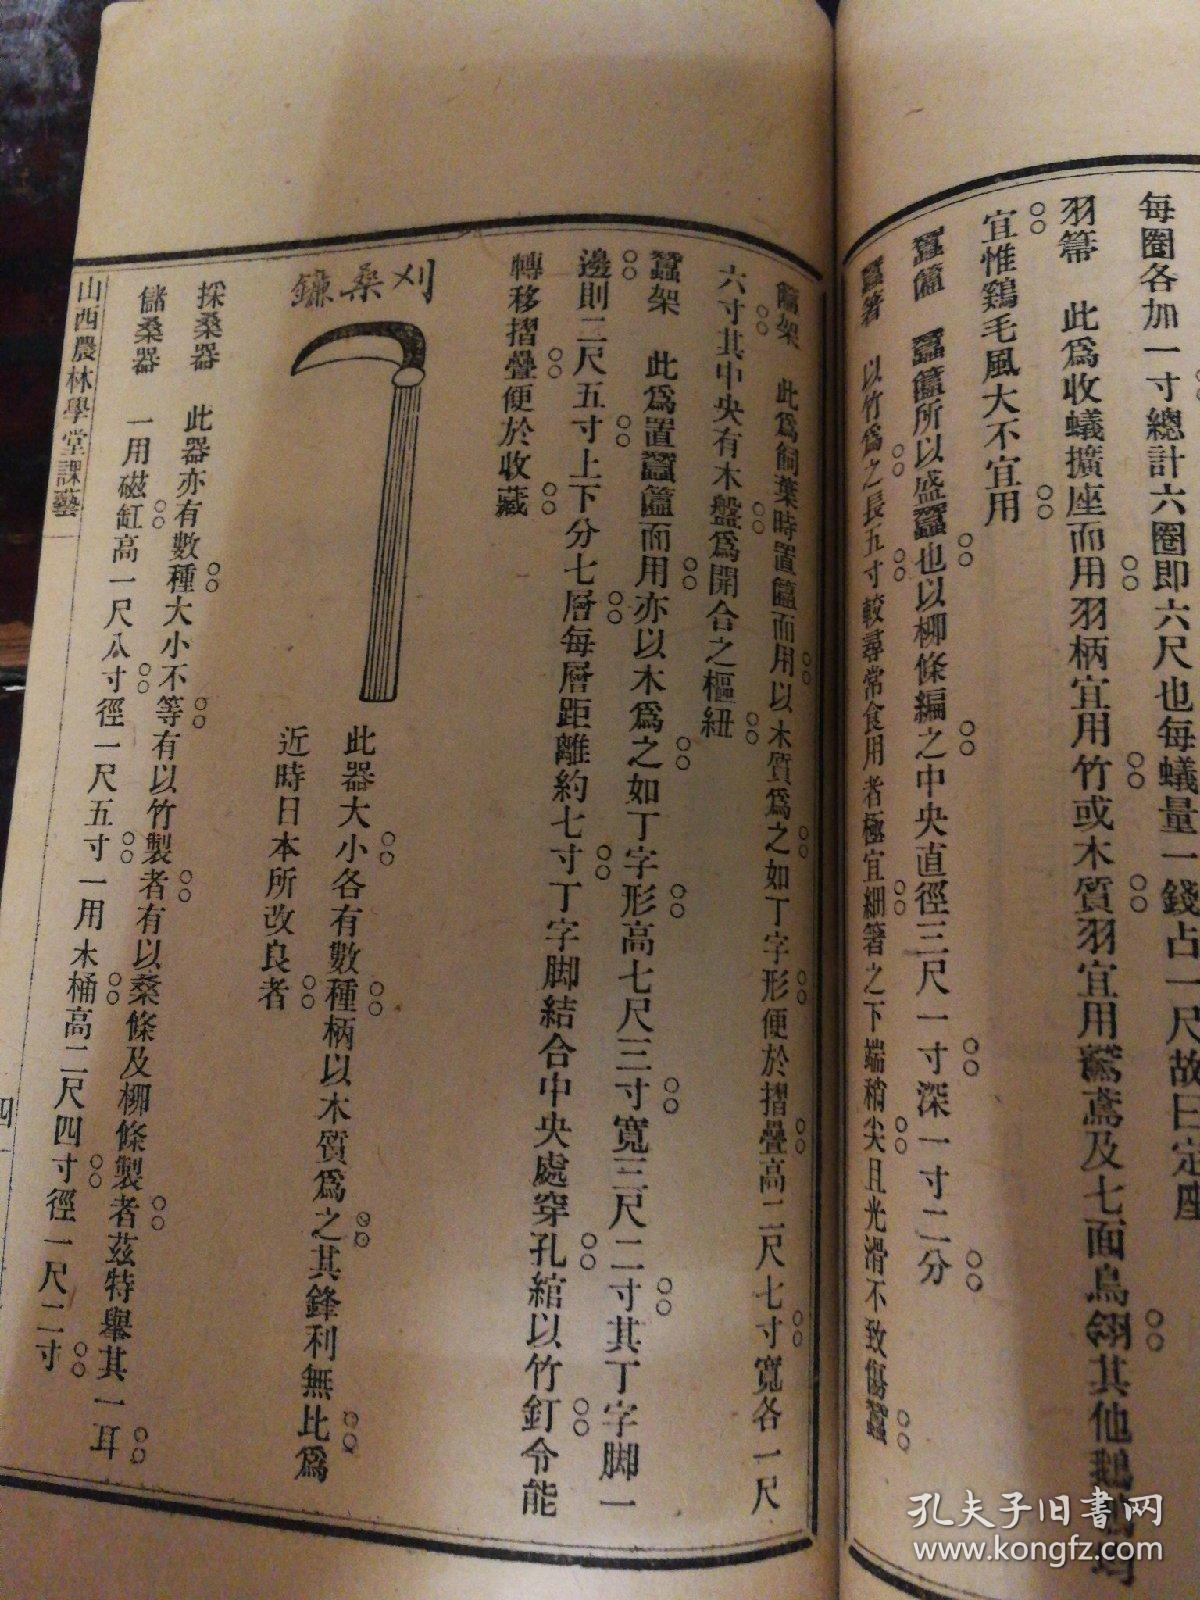 每圈各加一寸總計六圈即六尺也每蟻量一錢占一尺故曰定座
羽箒　此爲收蟻擴座而用羽柄宜用竹或木質羽宜用鷲鳶及七面鳥翎其他鵝
宜惟鷄毛風大不宜用
蠶籃　蠶籃所以盛蠶也以柳條編之中央直徑三尺一寸深一寸二分
蠶箸　以竹爲之長五寸較尋常食用者極宜細箸之下端稍尖且光滑不致傷蠶
架　此爲飼葉時置籃而用以木質爲之如丁字形便於摺疊高二尺七寸寬各一尺
六寸其中央有木盤爲開合之樞紐
蠶架　此爲置蠶籃而用亦以木爲之如丁字形高七尺三寸寬三尺二寸其丁字脚一
邊則二尺五寸上下分七層每層距離約七寸丁字脚結合中央處穿孔綰以竹釘令能
轉移摺疊便於收藏
刈桑鐮
此器大小各有數種柄以木質爲之其鋒利無比爲
近時日本所改良者
採桑器　此器亦有數種大小不等有以竹製者有以桑條及柳條製者茲特舉其一耳
儲桑器　一用磁缸高一尺八寸徑一尺五寸一用木桶高二尺四寸徑一尺二寸
山西農林學堂課藝
四
孔夫子旧书网
www.kongfz.com